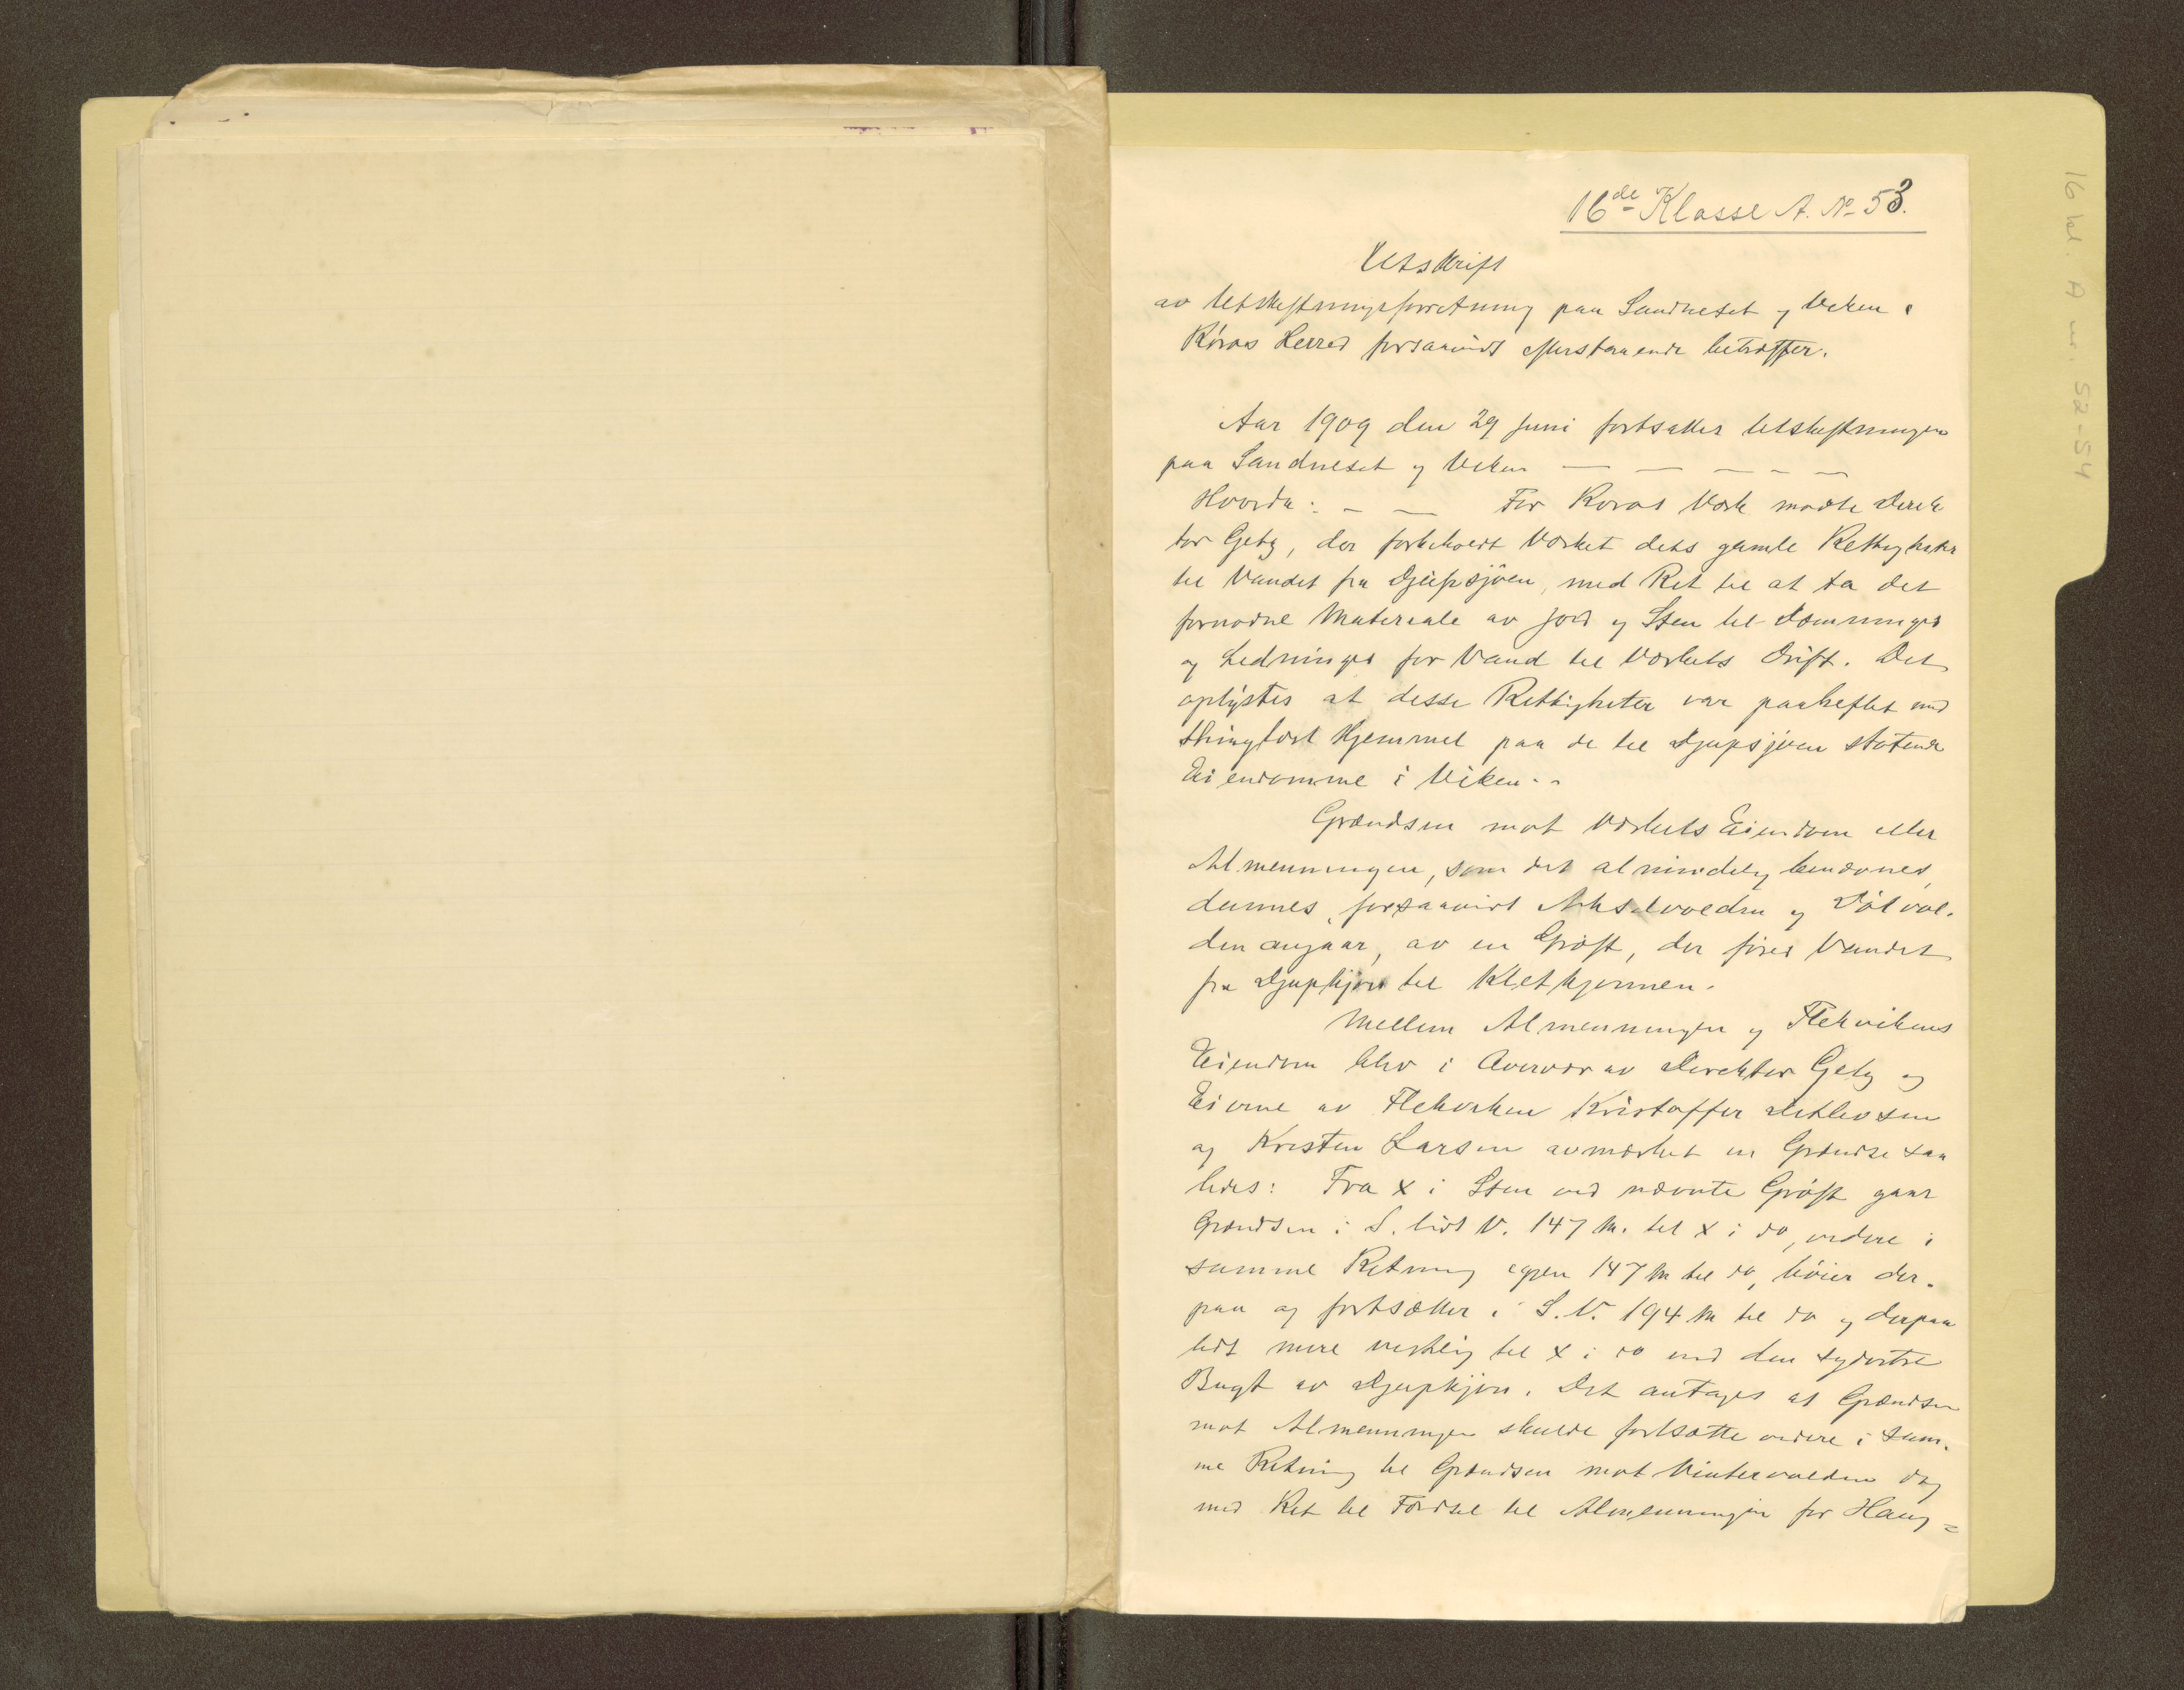 16de Klasse A. No 53.
Utskrift
av Utskiftningsforretning paa Sandneset og Viken i
Røros Herred forsaavidt efterstaaende betræffer.
Aar 1909 den 29 Juni fortsattes Utskiftningen
paa Sandneset og Viken — — — — —
Hvorda: — — For Røros Værk mødte Direk
tør Getz, der forbeholdt Værket dets gamle Rettigheter
til Vandet fra Djupsjøen, med Ret til at ta det
fornødne Materiale av Jord og Sten til Dæmninger
og Ledninger for Vand til Værkets Drift. Det
oplystes at disse Rettigheter var paaheftet med
thinglæst Hjemmel paa de til Djupsjøen støtende
Eiendomme i Viken. -
Grændsen mot Værkets Eiendom eller
Almenningen, som det almindelig benævnes,
dannes, forsaavidt Akselvolden og Dølvol-
den angaar, av en Grøft, der fører Vandet
fra Djuptjørn til Klettjernen.
Mellem Almenningen og Flekvikens
Eiendom blev i Overvær av Direktør Getz og
Eierne av Flekviken Kristoffer Detlevsen
og Kristen Larsen avmærket en Grændse saa
ledes: Fra X i Sten ved nævnte Grøft gaar
Grændsen i S. lidt V. 147 m. til X i do, videre i
samme Retning igjen 147 m til do, bøier der-
paa og fortsætter i S.V. 194 m til do og derpaa
lidt mere vestlig til X i do ved den sydøstre
Bugt av Djuptjern. Det antages at Grændsen
mot Almenningen skulde fortsætte videre i sam-
me Retning til Grændsen mot Vintervolden dog
med Ret til Færdsel til Almenningen for Haug=
16 kl. A nr. 52-54